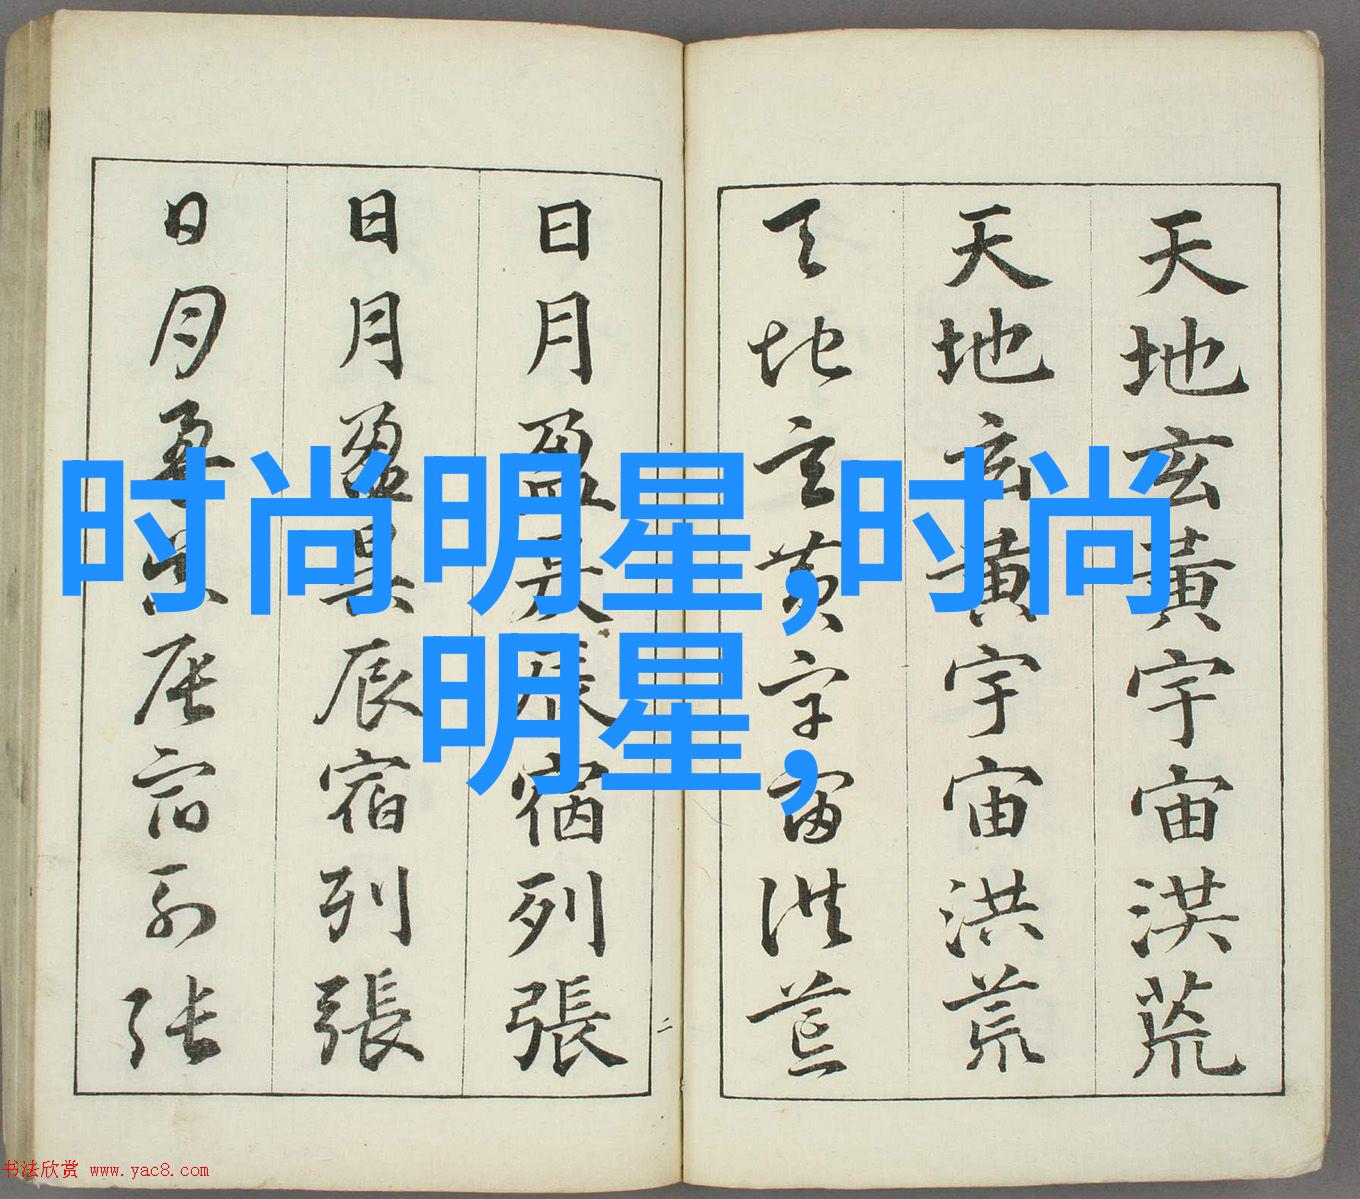 天地玄黃宇宙洪荒
天地玄黃宇宙洪荒
天地玄黃宇宙洪荒
二
日月盈昃辰宿列張
日月盈昃辰宿列張
日月盈昃辰宿列張
时尚明星,时尚
明星,
书法欣赏 www.yac8.com